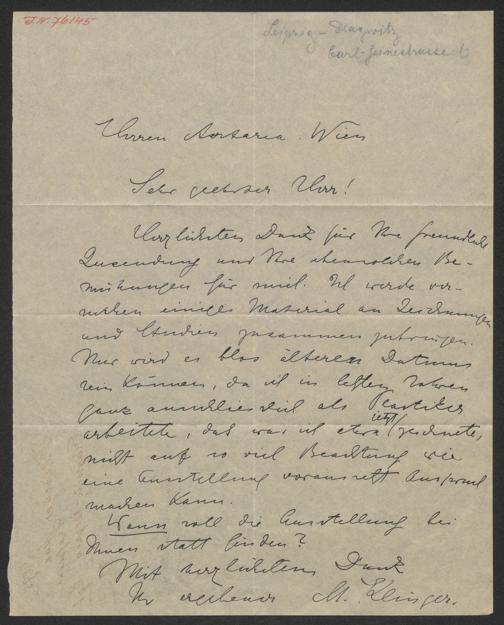 J.N. 76145
Leipzig-Plagwitz
Carl-Heinestrasse 6
Herren Artaria Wien
Sehr geehrter Herr!
Herzlichsten Dank für Ihre freundliche
Zusendung und Ihre ehrenvollen Be-
mühungen für mich. Ich werde ver-
suchen einiges Material an Zeichnungen
und Studien zusammen zu bringen.
Nur wird es blos älteren Datums
sein können, da ich in letzten Jahren
ganz ausschliesslich als Plastiker
arbeitete, das was ich etwa jetzt zeichnete,
nicht auf so viel Beachtung wie
eine Ausstellung voraussetzt Anspruch
machen kann.
Wann soll die Ausstellung bei
Ihnen statt finden?
Mit herzlichstem Dank
Ihr ergebener M. Klinger.